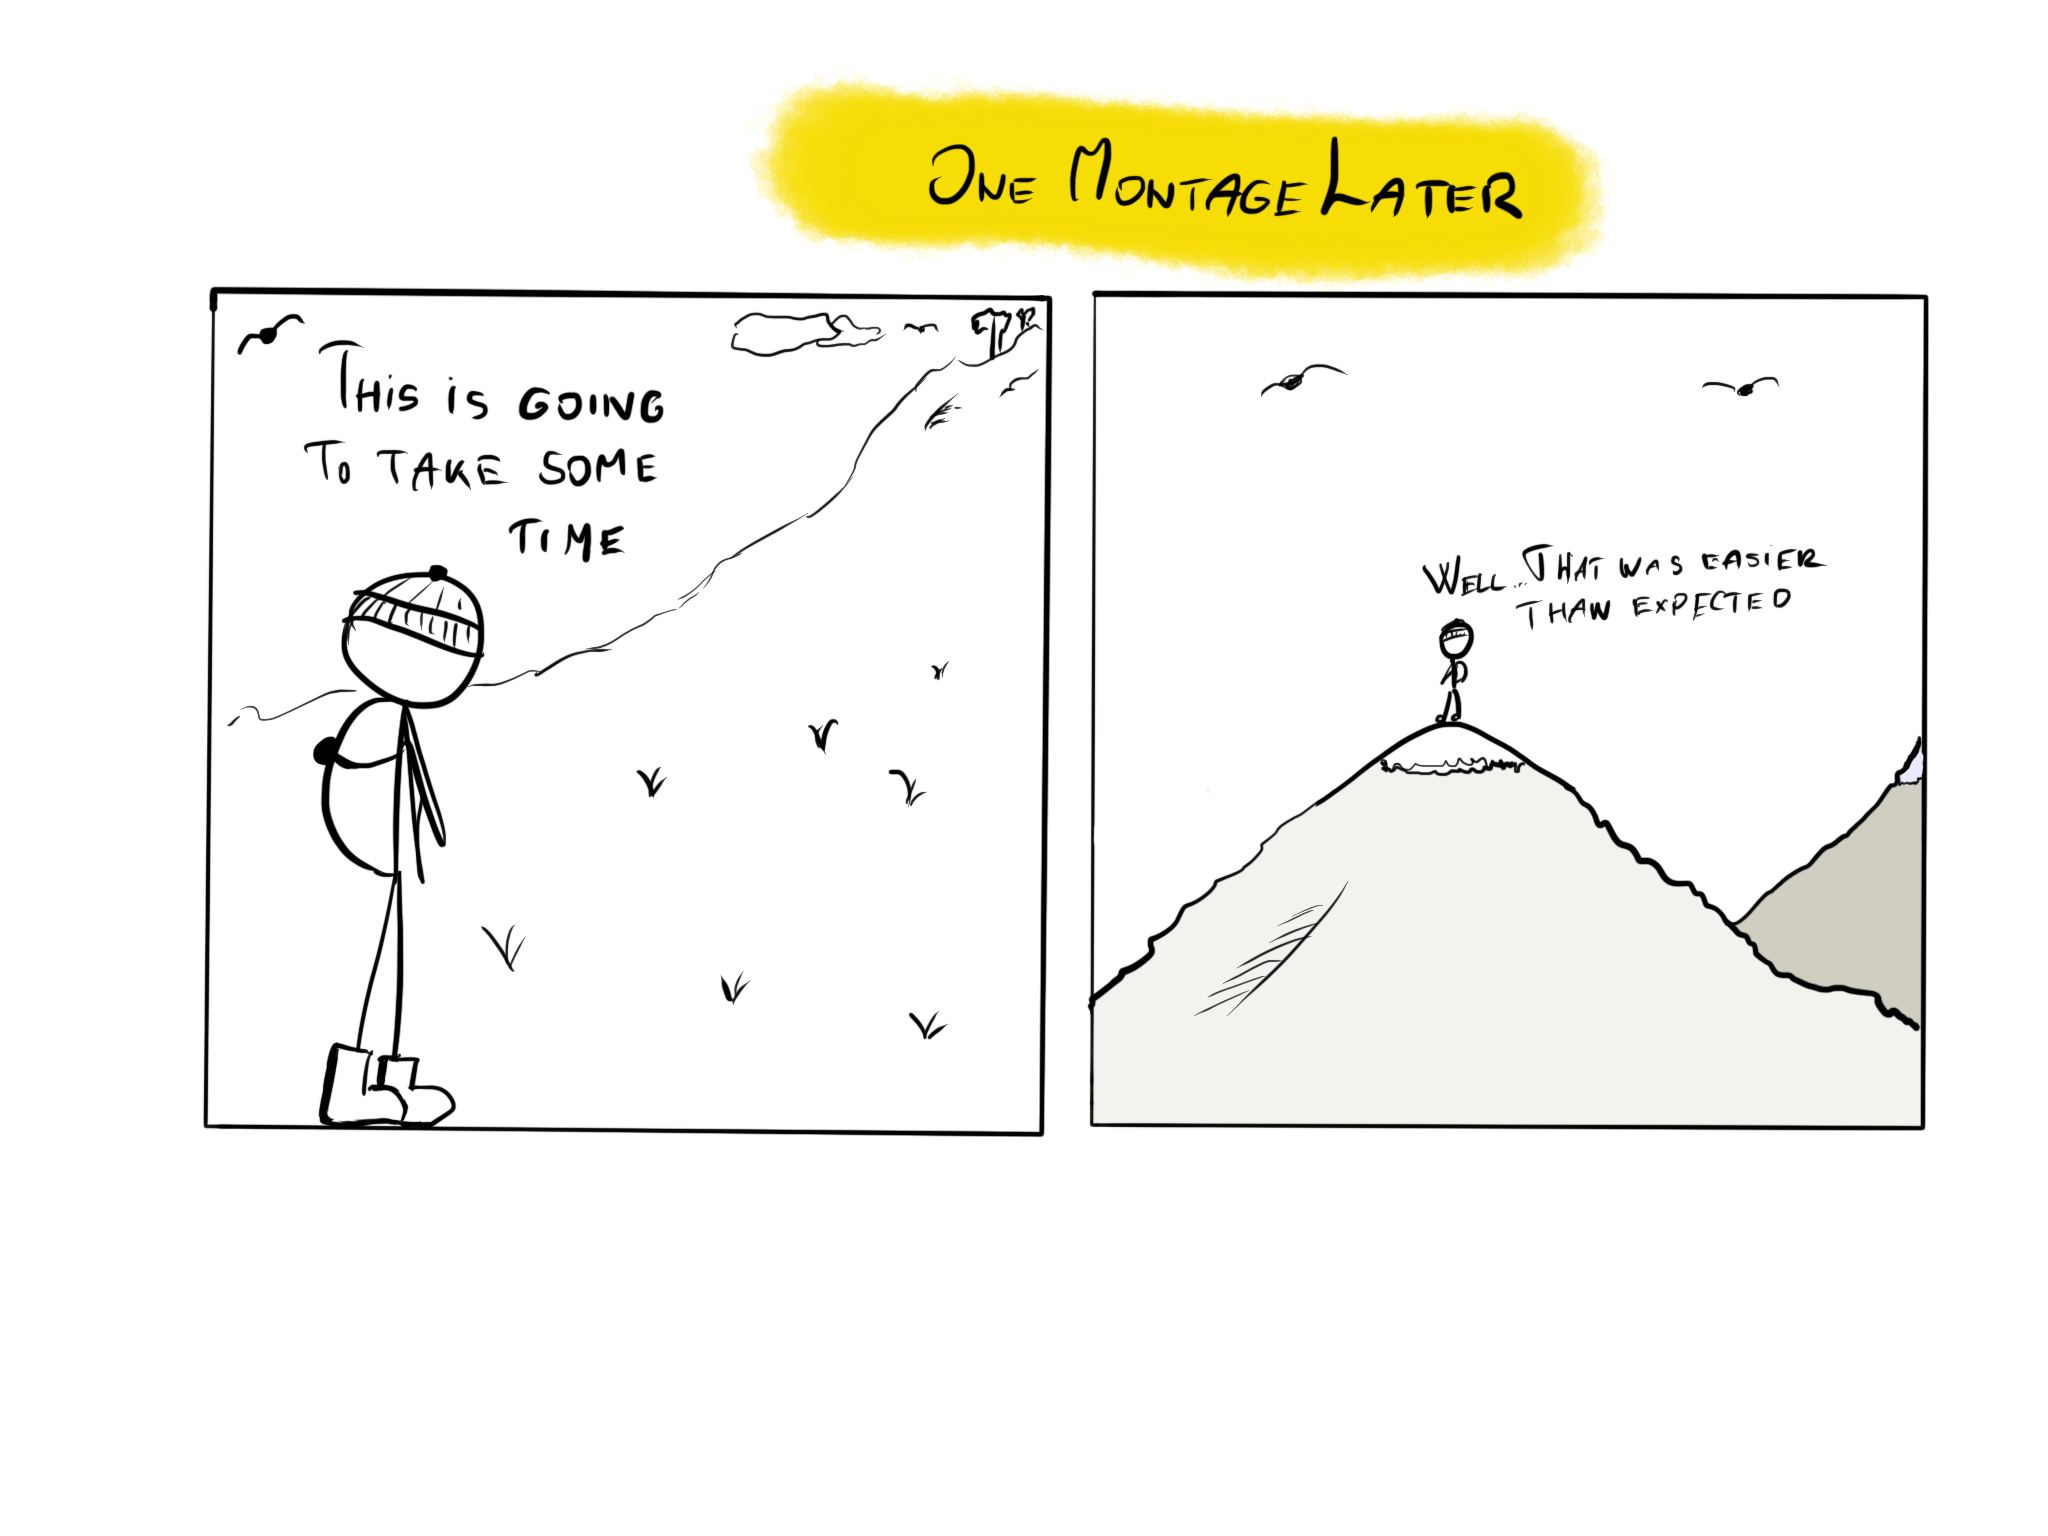 One Montage Later
This is going
to take some
time
Well... That was easier
than expected